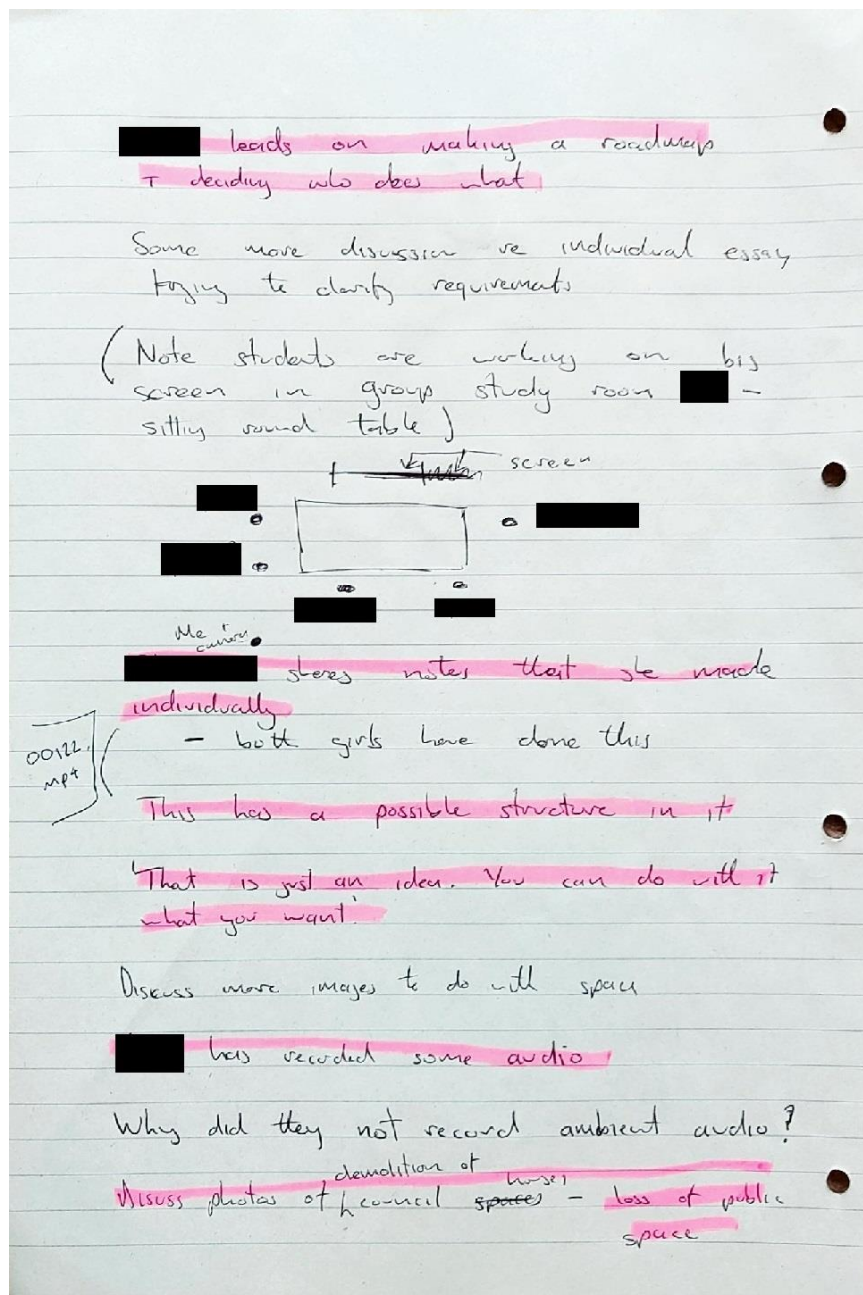 leads on making a roadmap
+ deciding who does what
Some more discussion re individual essay
trying to clarify requirements
(Note students are working on big
screen in group study room -
sitting round table)
screen
Me +
camera
shares notes that she made
individually
- both girls have done this
00122.
mp4
This has a possible structure in it
'That is just an idea. You can do with it
what you want'
Discuss more images to do with space
has recorded some audio
Why did they not record ambient audio?
demolition of houses
Discuss photos of council spaces - loss of public
space